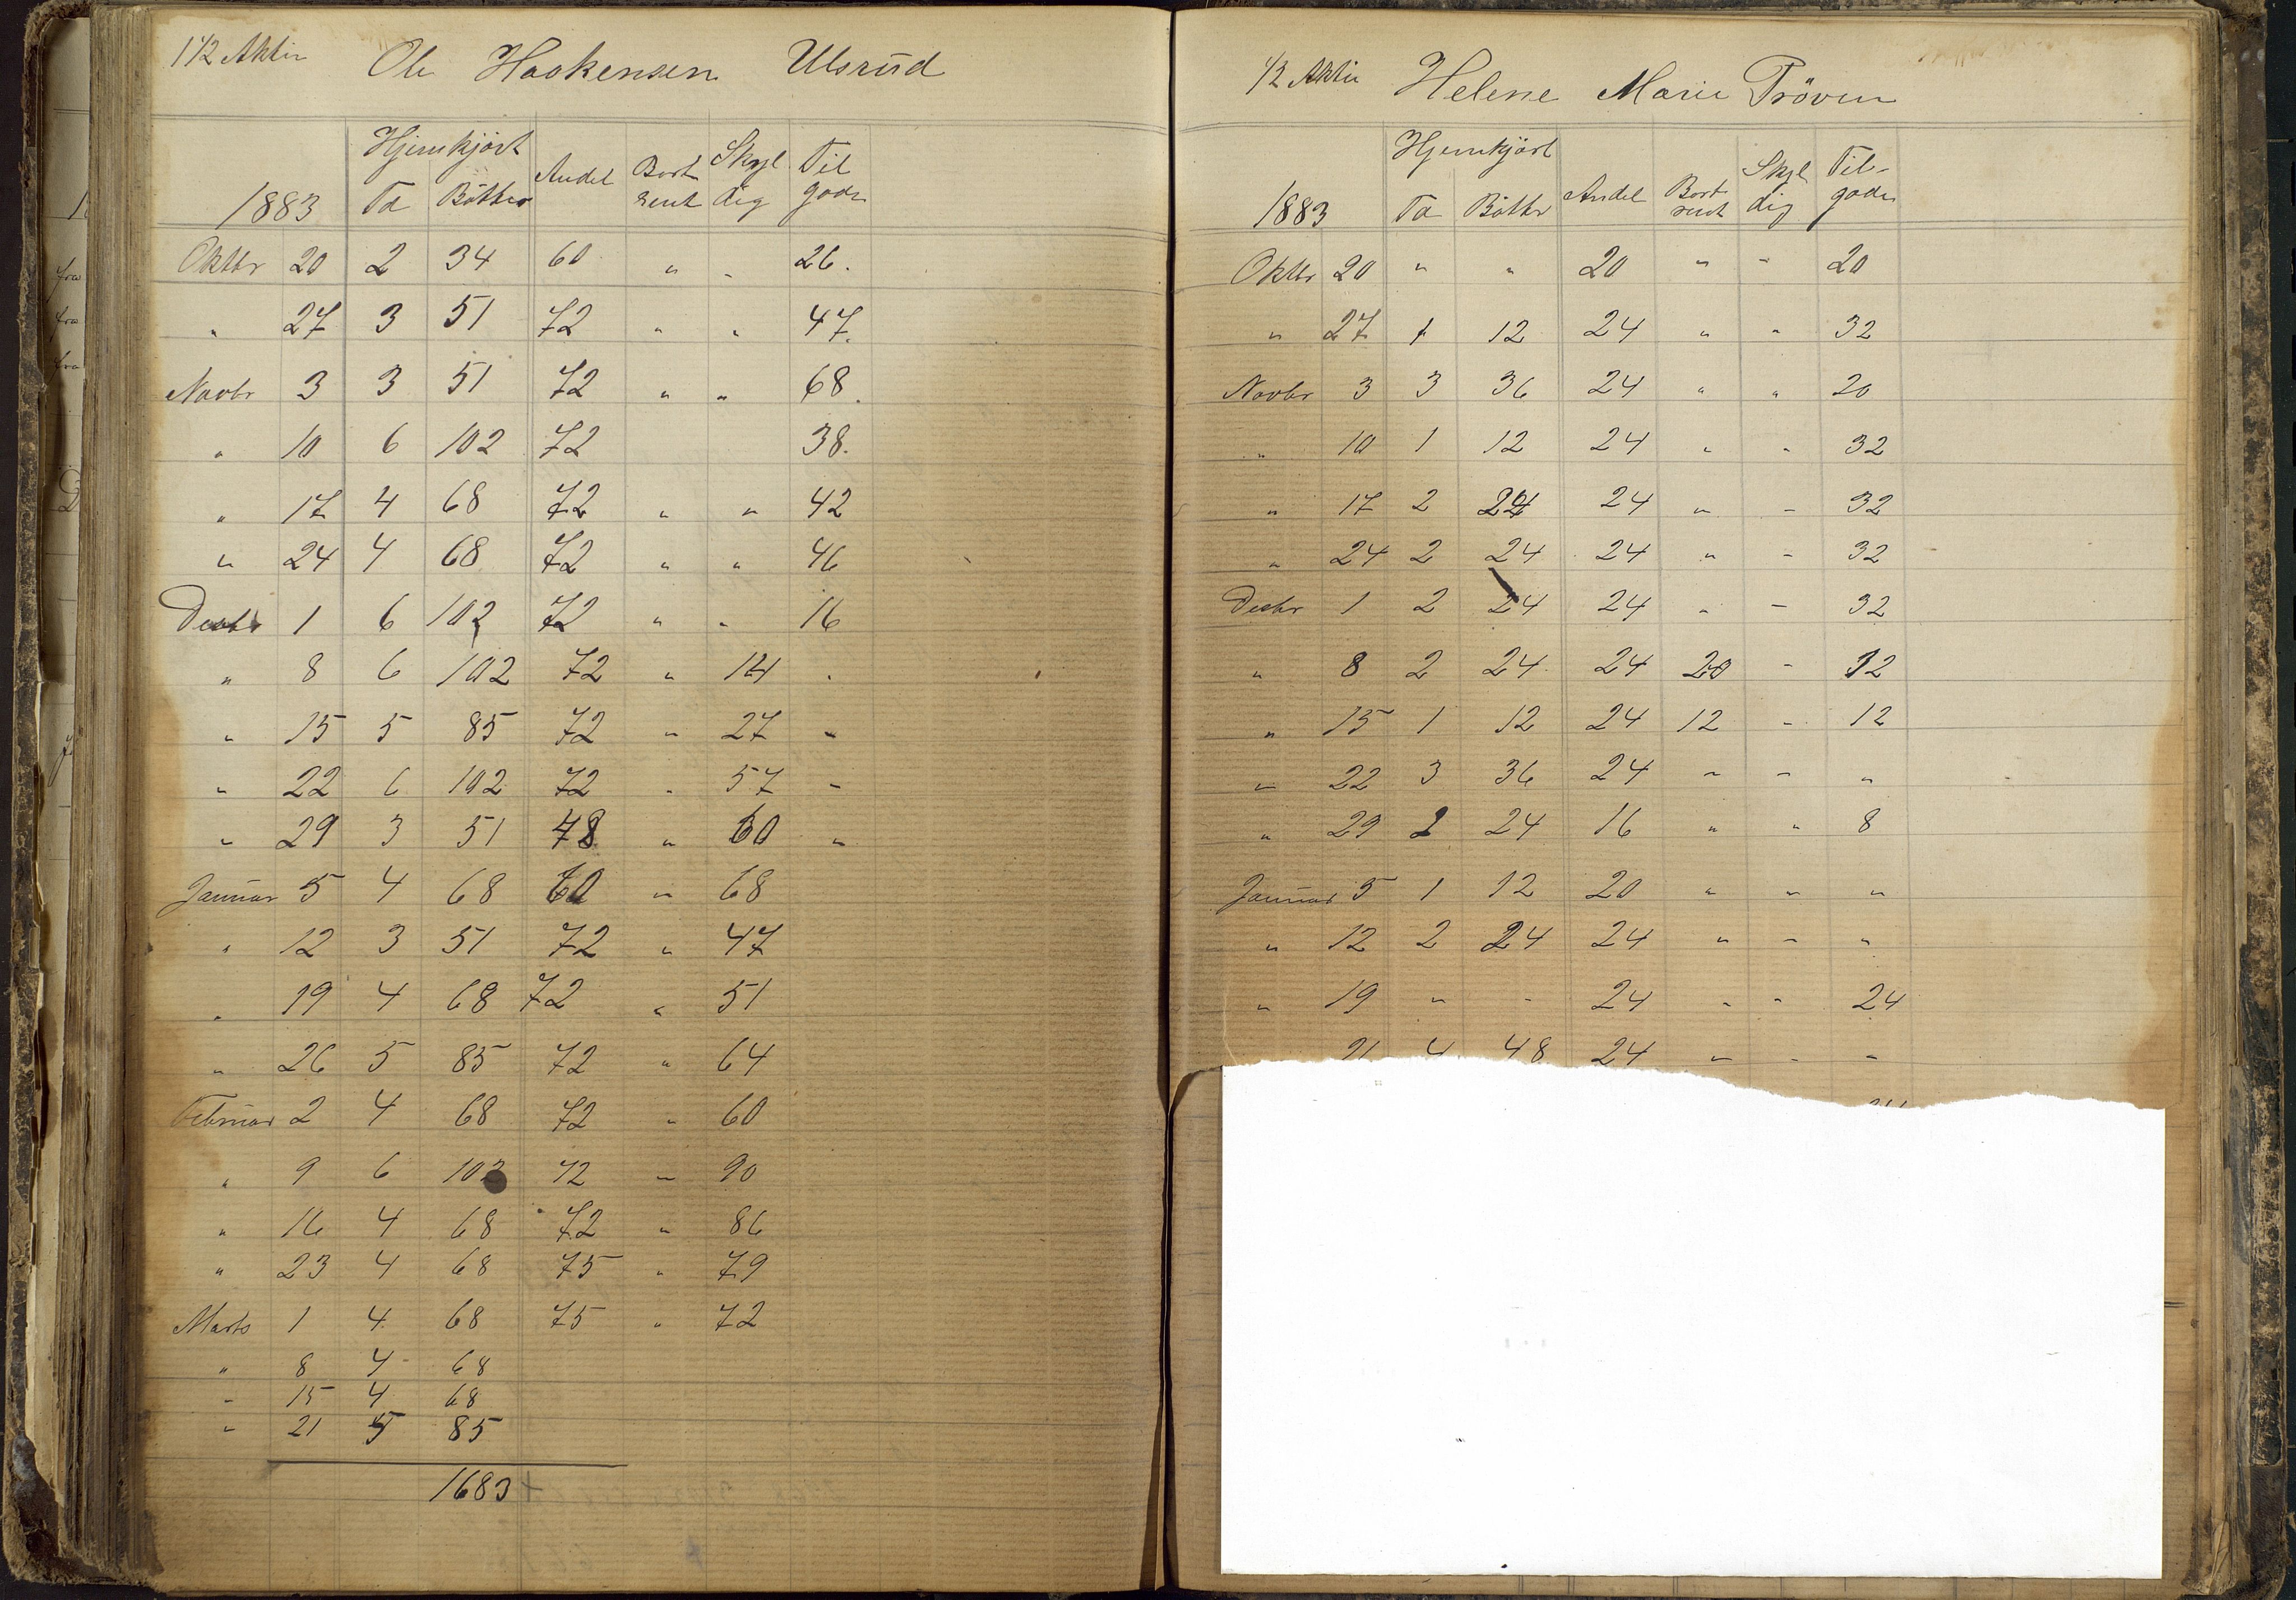 1 1/2 Aktie Ole Haakensen Ulsrüd
Hjemkjört
1883 Td Bötter Andel Bort rent Skyl dig Til gode
Oktbr 20 2 34 60 " " 26.
" 27 3 51 72 " " 47.
Novbr 3 3 51 72 " " 68.
" 10 6 102 72 38.
" 17 4 68 72 " " 42
" 24 4 68 72 " " 46
Decbr 1 6 102 72 " " 16
" 8 6 102 72 " 14 "
" 15 5 85 72 " 27 "
" 22 6 102 72 " 57 "
" 29 3 51 48 " 60 "
Januar 5 4 68 60 " 68
" 12 3 51 72 " 47
" 19 4 68 72 " 51
" 26 5 85 72 " 64
Februar 2 4 68 72 " 60
" 9 6 102 72 " 90
" 16 4 68 72 " 86
" 23 4 68 75 " 79
Marts 1 4 68 75 " 72
" 8 4 68
" 15 4 68
" 21 5 85
1683
1/2 Aktie Helene Marie Pröven
Hjemkjört
1883 Td Bötter Andel Bort rent Skyl dig Til- gode
Oktbr 20 " " 20 " " 20
" 27 1 12 24 " " 32
Novbr 3 3 36 24 " " 20
" 10 1 12 24 " " 32
" 17 2 24 24 " " 32
" 24 2 24 24 " " 32
Decbr 1 2 24 24 " " 32
" 8 2 24 24 20 " 12
" 15 1 12 24 12 " 12
" 22 3 36 24 " " "
" 29 2 24 16 " " 8
Januar 5 1 12 20 " " "
" 12 2 24 24 " " "
" 19 " " 24 " " 24
4 48 24 " " "